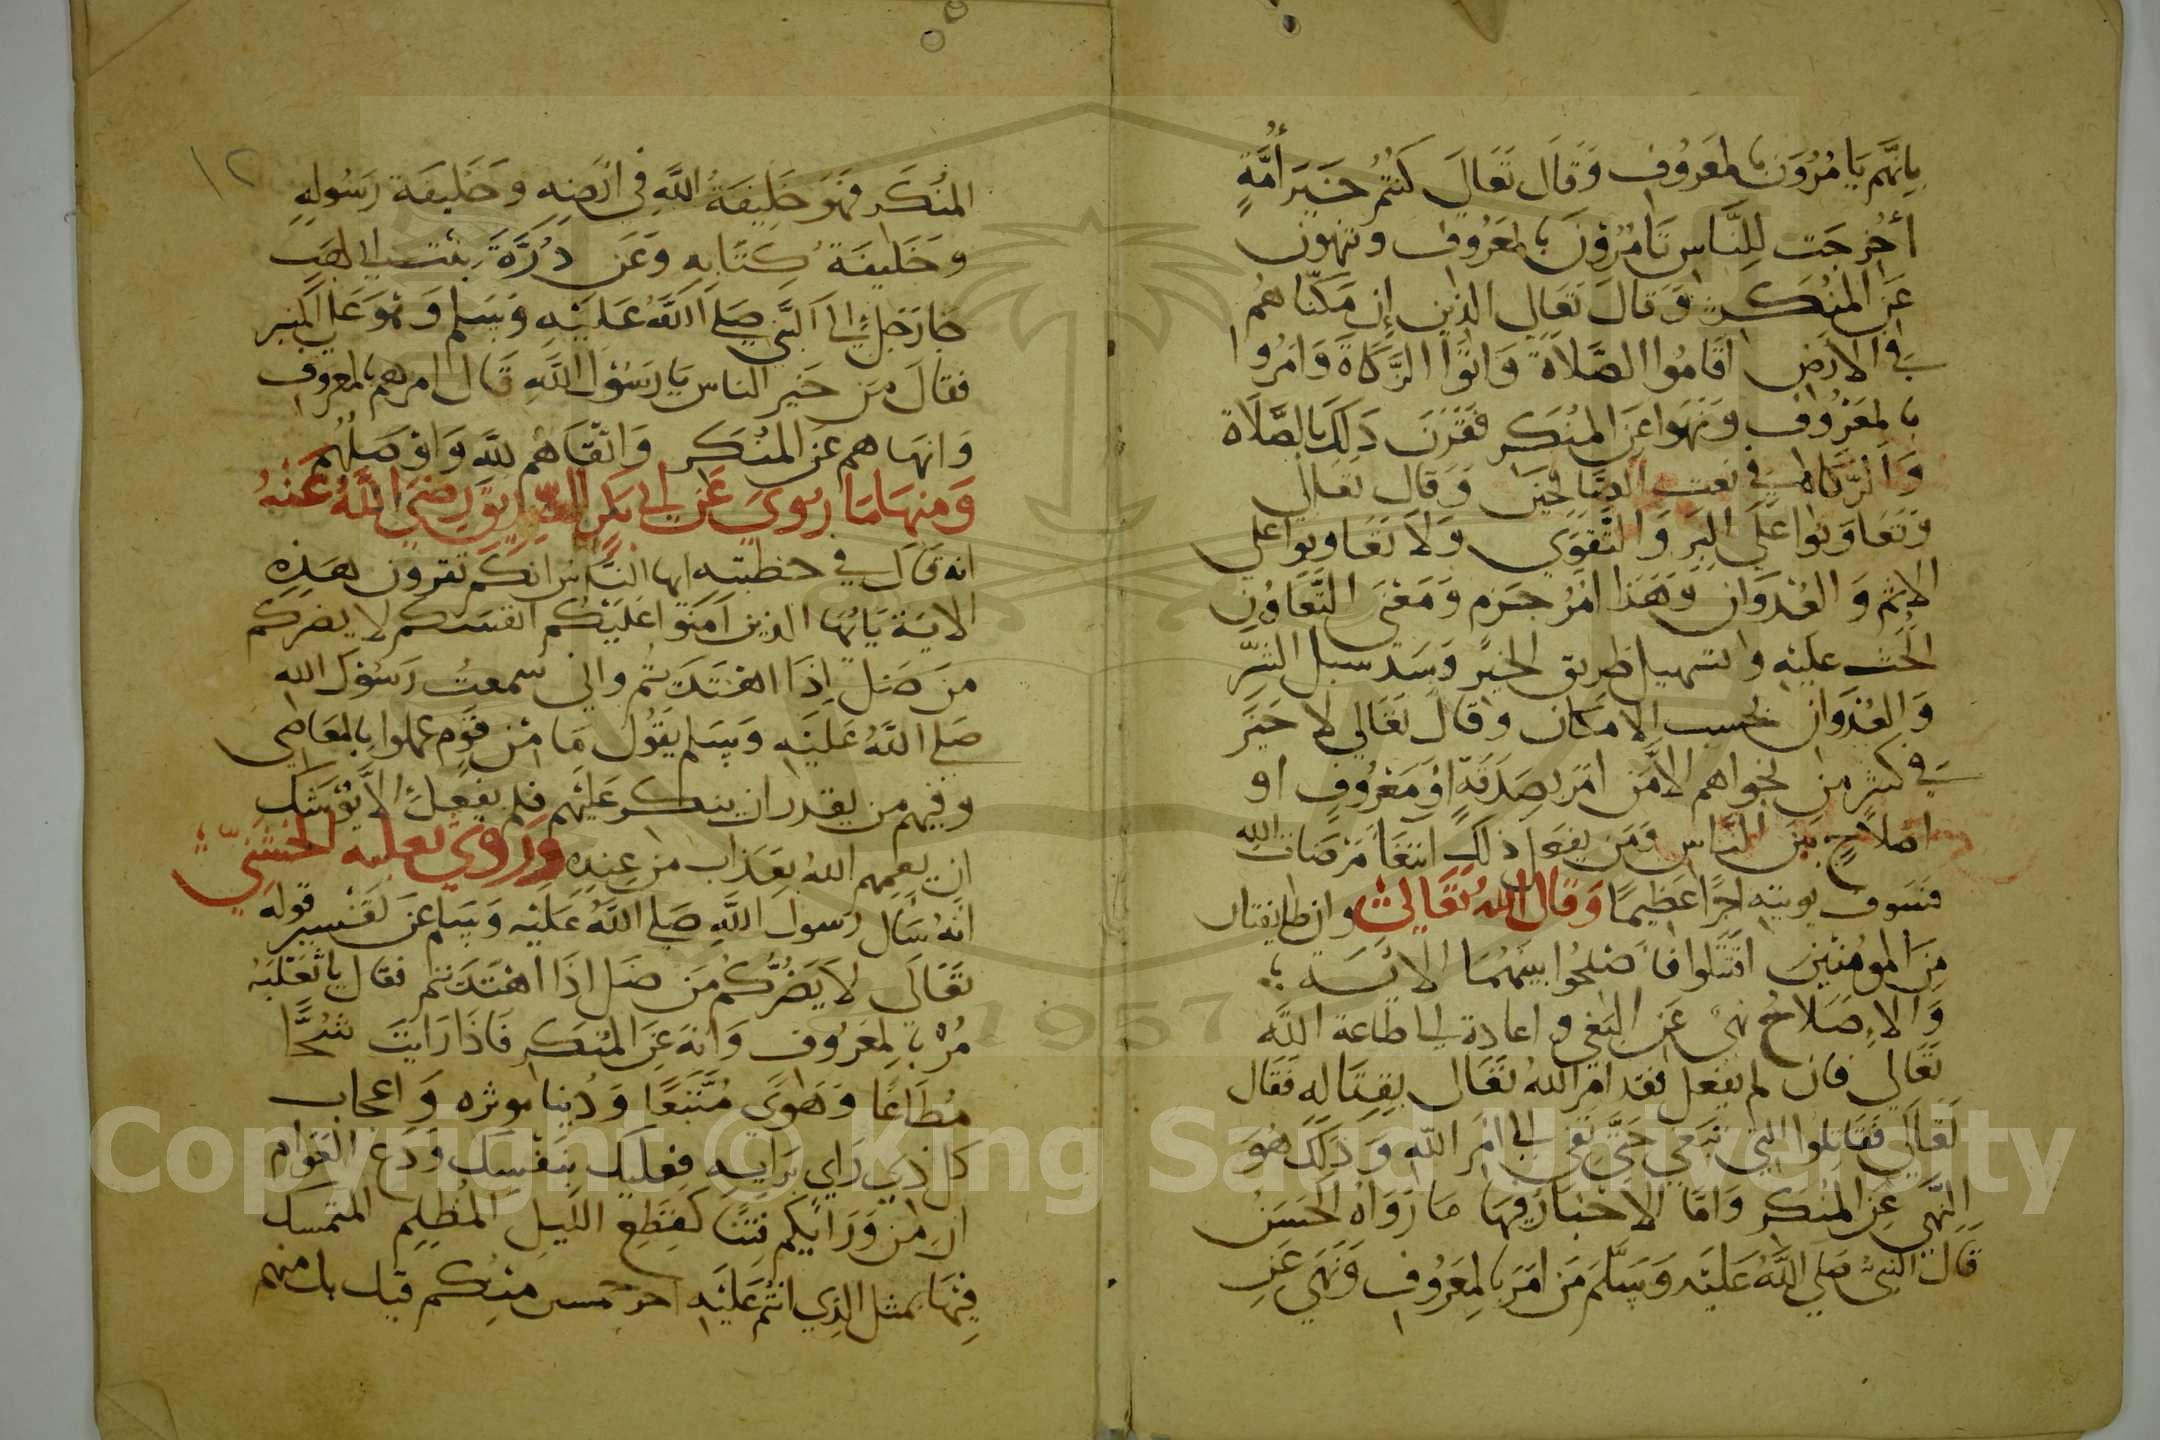 بِانهَّم يَامُرُوَن بالمعَرُوُف وَقَالَ تَعَالَى كنتُم خَيرَ أُمَّةٍ
أخرجَت لِلنَّاسِ تَامُرُونَ بالمعَرُوف وتنهون
عَن المنُكر وَقالَ تعَالى الذين إن مَكنّاهُم
في الارَضِ اقامُوا الصَّلاةَ وَاتوُا الزَّكاةَ وَامَرُوا
بالمعَرُوف وَنَهَوا عَن المُنكَر فقَرَن ذَلكَ بالصَّلَاة
وَالزكاة في نعت الصالحين وَقالَ تعَالى
وَتعَاوَنوُا عَلَى البِرِ وَالتَّقوَى وَلاَ تعَاوَنوا على
الاِثمِ وَالعُدوَان وَهَذا امرُ جَزم وَمَعْنَى التَّعَاوُن
الحَث عليَهِ وتسهيل طريق الخيَرِ وَسَد سبيل الشَرّ
وَالعُدوَان بحسب الامكان وقالَ تعَالى لا خَيَر
في كثير مِن نجواهم الاَّ مَن امَر بصَدَقةٍ اوَ مَعرُوفٍ او
اصَلاحٍ بين النَّاس وَمَن يفعَل ذلك ابتغَا مَرضَات الله
فسَوف يوتيه اجرًا عَظِيماً وَقال اللهُ تعَالى وان طايفتان
مِن المومُنين اقتتلوا فاصَلحُوا بينهمُا الايَة
وَالاِصَلاحُ نهى عَن البغي واعادة الى طاعَة اللَّه
تعَالى فان لم يفعل فقد امَر اللهُ تعَالى بقتاله فقال
تعَالى فقَاتِلوا التي تبغي حَتَّى تفى الى امَر اللهِ وَذلكَ هُوَ
النَّهي عَن المنُكر وَامَا الاخَبار فمِنهَا مَا رَوَاهُ الحَسَن
قالَ النبىُ صَلى اللَّهُ عَليَه وَسَلَّمَ مَن امَرَ بالمِعَرُوف وَنهَى عَن
١٢
المنُكَر فهَوَ خَليفَةُ اللَّهِ في ارَضِهِ وخَليفَة رَسُولِهِ
وخَليفَةُ كِتابِهِ وَعَن دُرَّةَ بنت ابى لهَب
جَا رَجلٌ الى النَّبى صَلى اللَّهُ عَليَهِ وَسَلم وَهُوَ عَلى المنبر
فقالَ مَن خَير الناس يَا رَسُول اللَّهِ قالَ امرهم بالمعَروف
وَانهاهم عَن المنُكَر وَاتقاهُم للهِ وَاوَصَلهُم
وَمنهَا مَا رُوىَ عَن ابى بَكرٍ الصِّديق رَضىَ اللَّهُ عَنهُ
انه قالَ في خطبته ايها النَّاسُ انكم تقرون هَذِهِ
الايَة يَا ايُهَا الذين امَنوا عَليَكُم انفسَكم لا يضركم
مَن ضَل اِذَا اهتَدَيتُم واني سمعتُ رَسُولَ الله
صَلى اللَّهُ عَليَهِ وَسَلم يقوُل مَا مْن قوَم عملوا بالمعَاصِي
وفيهم من يقدر ان ينكر عَليَهم فلم يفعَل الاَّ يوُشَك
ان يعمهم اللهُ بعَذاب مِن عِندِه وَرَوىَ ثعلبه الخشنىّ
انهُ سَأل رَسول اللَّهِ صَلى اللَّهُ عَليْه وَسَلم عَن تفسير قوله
تعَالى لاَ يَضُرَّكُم مَن ضَل اذَا اهْتدَيتم فقال يا ثعَلبَهُ
مُر بالمعَرُوف وَانهَ عَن المنُكر فاذَا رَايتَ شُحًّا
مُطاعًا وَهَوىً مُتَّبَعًا وَدُنيا موثره وَاعجاب
كل ذي رَاي برَايهِ فعليَك بنَفْسِك وَدَع العَوام
ان مْن وَرَايكم فتنًا كقِطعِ الليل المُظلِم المتمسك
فِيهَا بمثل الذي انتم عَليَهِ اجر خمسين منكم قيل بل منهم